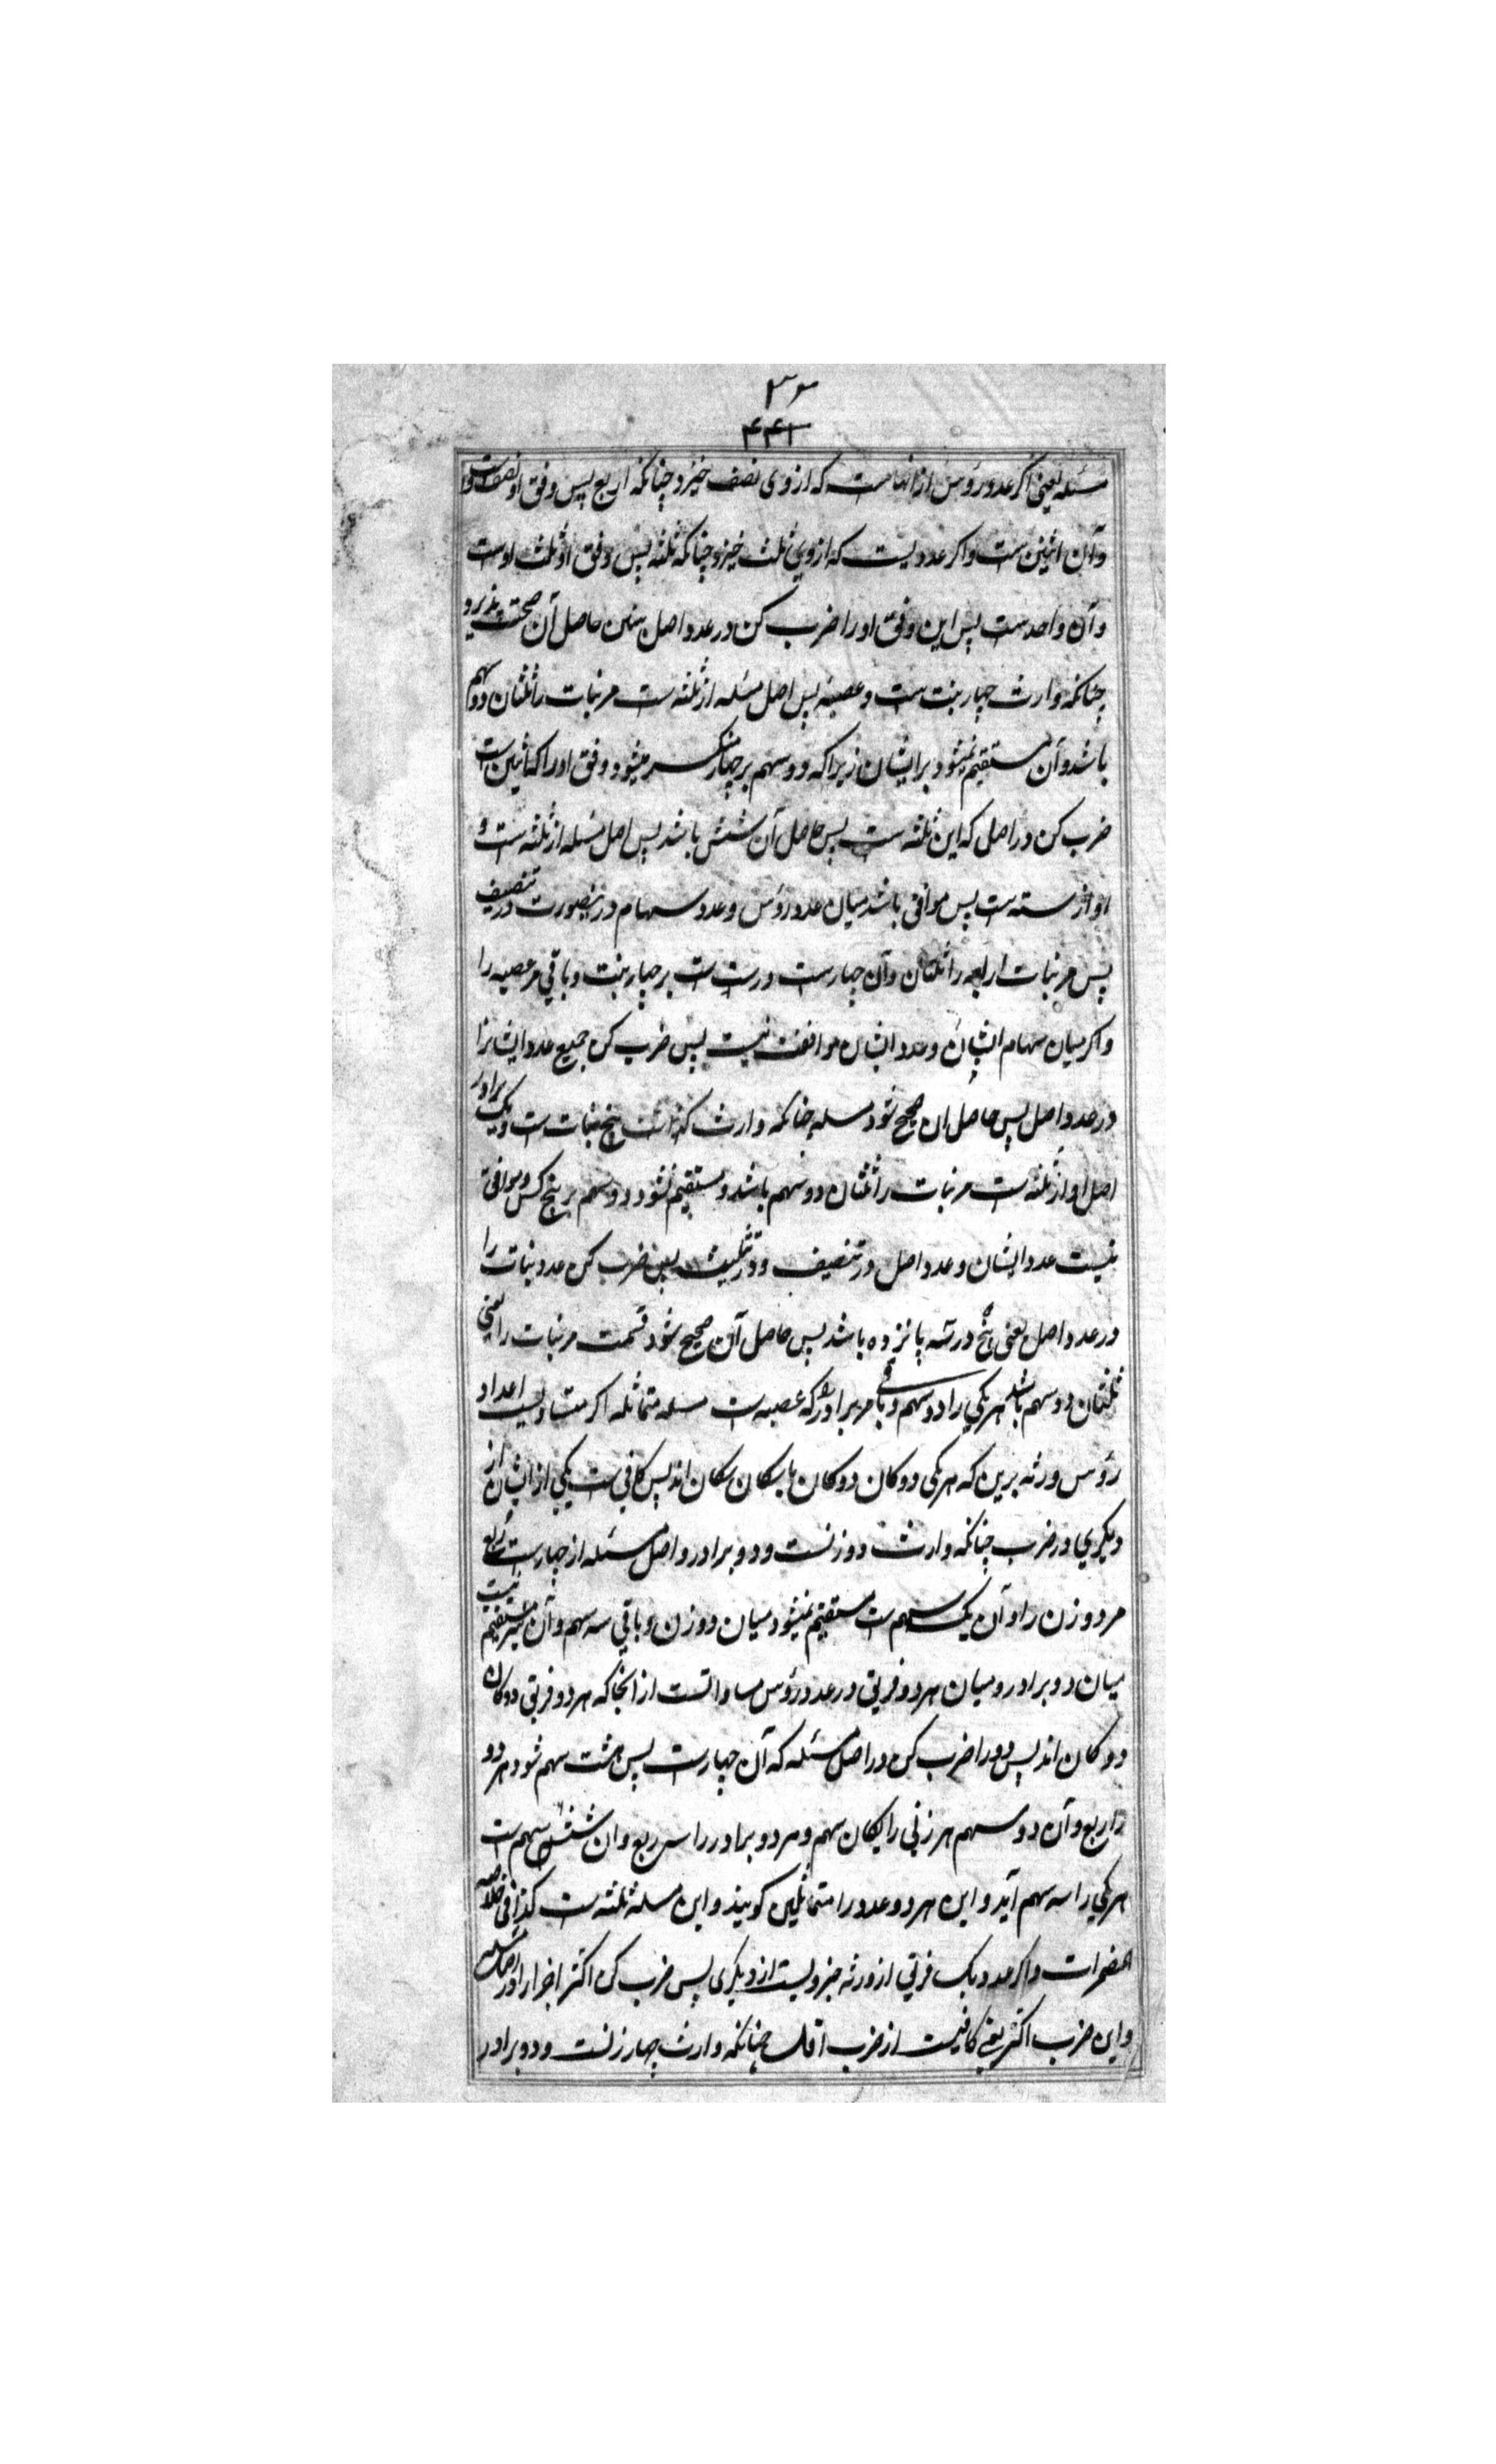 ۴۴۱
مسئله یعنی اگر عدد رؤس ازانهاست که از وی نصف خیزد چنانکه اربع پس وفق او نصف اوست
و آن اثنین ست و اگر عددیست که از وی ثلث خیزد چنانکه ثلثه پس وفق او ثلث اوست
و آن واحدست پس این وفق او را ضرب کن در عدد اصل حاصل آن صحت پذیرد
چنانکه وارث چهار بنت ست و عصبه پس اصل مسئله از ثلثه ست مر بنات را ثلثان دو سهم
باشد و آن مستقیم نمیشود بر ایشان زیراکه دو سهم بر چهار منکسر میشود وفق او را که اثنین ست
ضرب کن در اصل که این ثلثه ست پس حاصل آن شش باشد پس اصل مسئله از ثلثه ست و
او از سته ست پس موافق باشد میان عدد رؤس و عدد سهام درینصورت در تنصیف
پس مر بنات اربعه را ثلثان و آن چهارست درست ست بر چهار بنت و باقی مر عصبه را
و اگر میان سهام ایشان و عدد ایشان موافقت نیست پس ضرب کن جمیع عدد ایشانرا
در عدد اصل پس حاصل ان صحیح شود مسله چنانکه وارث پنج بنات ست و یک برادر
اصل او از ثلثه ست مر بنات را ثلثان دو سهم باشد و مستقیم نشود دو سهم بر پنج کس و موافق
نیست عدد ایشان و عدد اصل در تنصیف و در تثلیث پس ضرب کن عدد بنات را
در عدد اصل یعنی پنج در سه پانزده باشد پس حاصل آن صحیح شود قسمت مر بنات را یعنی
ثلثان دو سهم باشد هر یکی را دو سهم و باقی مر برادر را که عصبه ست مسله متماثله اگر متساویست اعداد
رؤس ورثه برین که هر یکی دوکان دوکان یا سکان سکان اند پس کافی ست یکی از ایشان از
دیگری در ضرب چنانکه وارث دو زنست و دو برادر و اصل مسئله از چهارست ربع
مر دو زن را و آن یک سهم ست مستقیم نمیشود میان دو زن و باقی سه سهم و آن نیز مستقیم نیست
میان دو برادر و میان هر دو فریق در عدد رؤس مساواتست از انجا که هر دو فریق دوکان
دوکان اند پس دو را ضرب کن در اصل مسئله که آن چهارست پس هشت سهم شود هر دو
را ربع و آن دو سهم هر زنی را یکان سهم و هر دو برادر را سه ربع و ان شش سهم ست
هر یکی را سه سهم آید و این هر دو عدد را متماثلین گویند و این مسله ثلثه ست کذا فی خلاصه
المضمرات و اگر عدد یک فریق از ورثه جزویست از دیگری پس ضرب کن اکثر اجزا را در اصل مسئله
و این ضرب اکثر یعنی کافیست از ضرب اقل چنانکه وارث چهار زنست و دو برادر